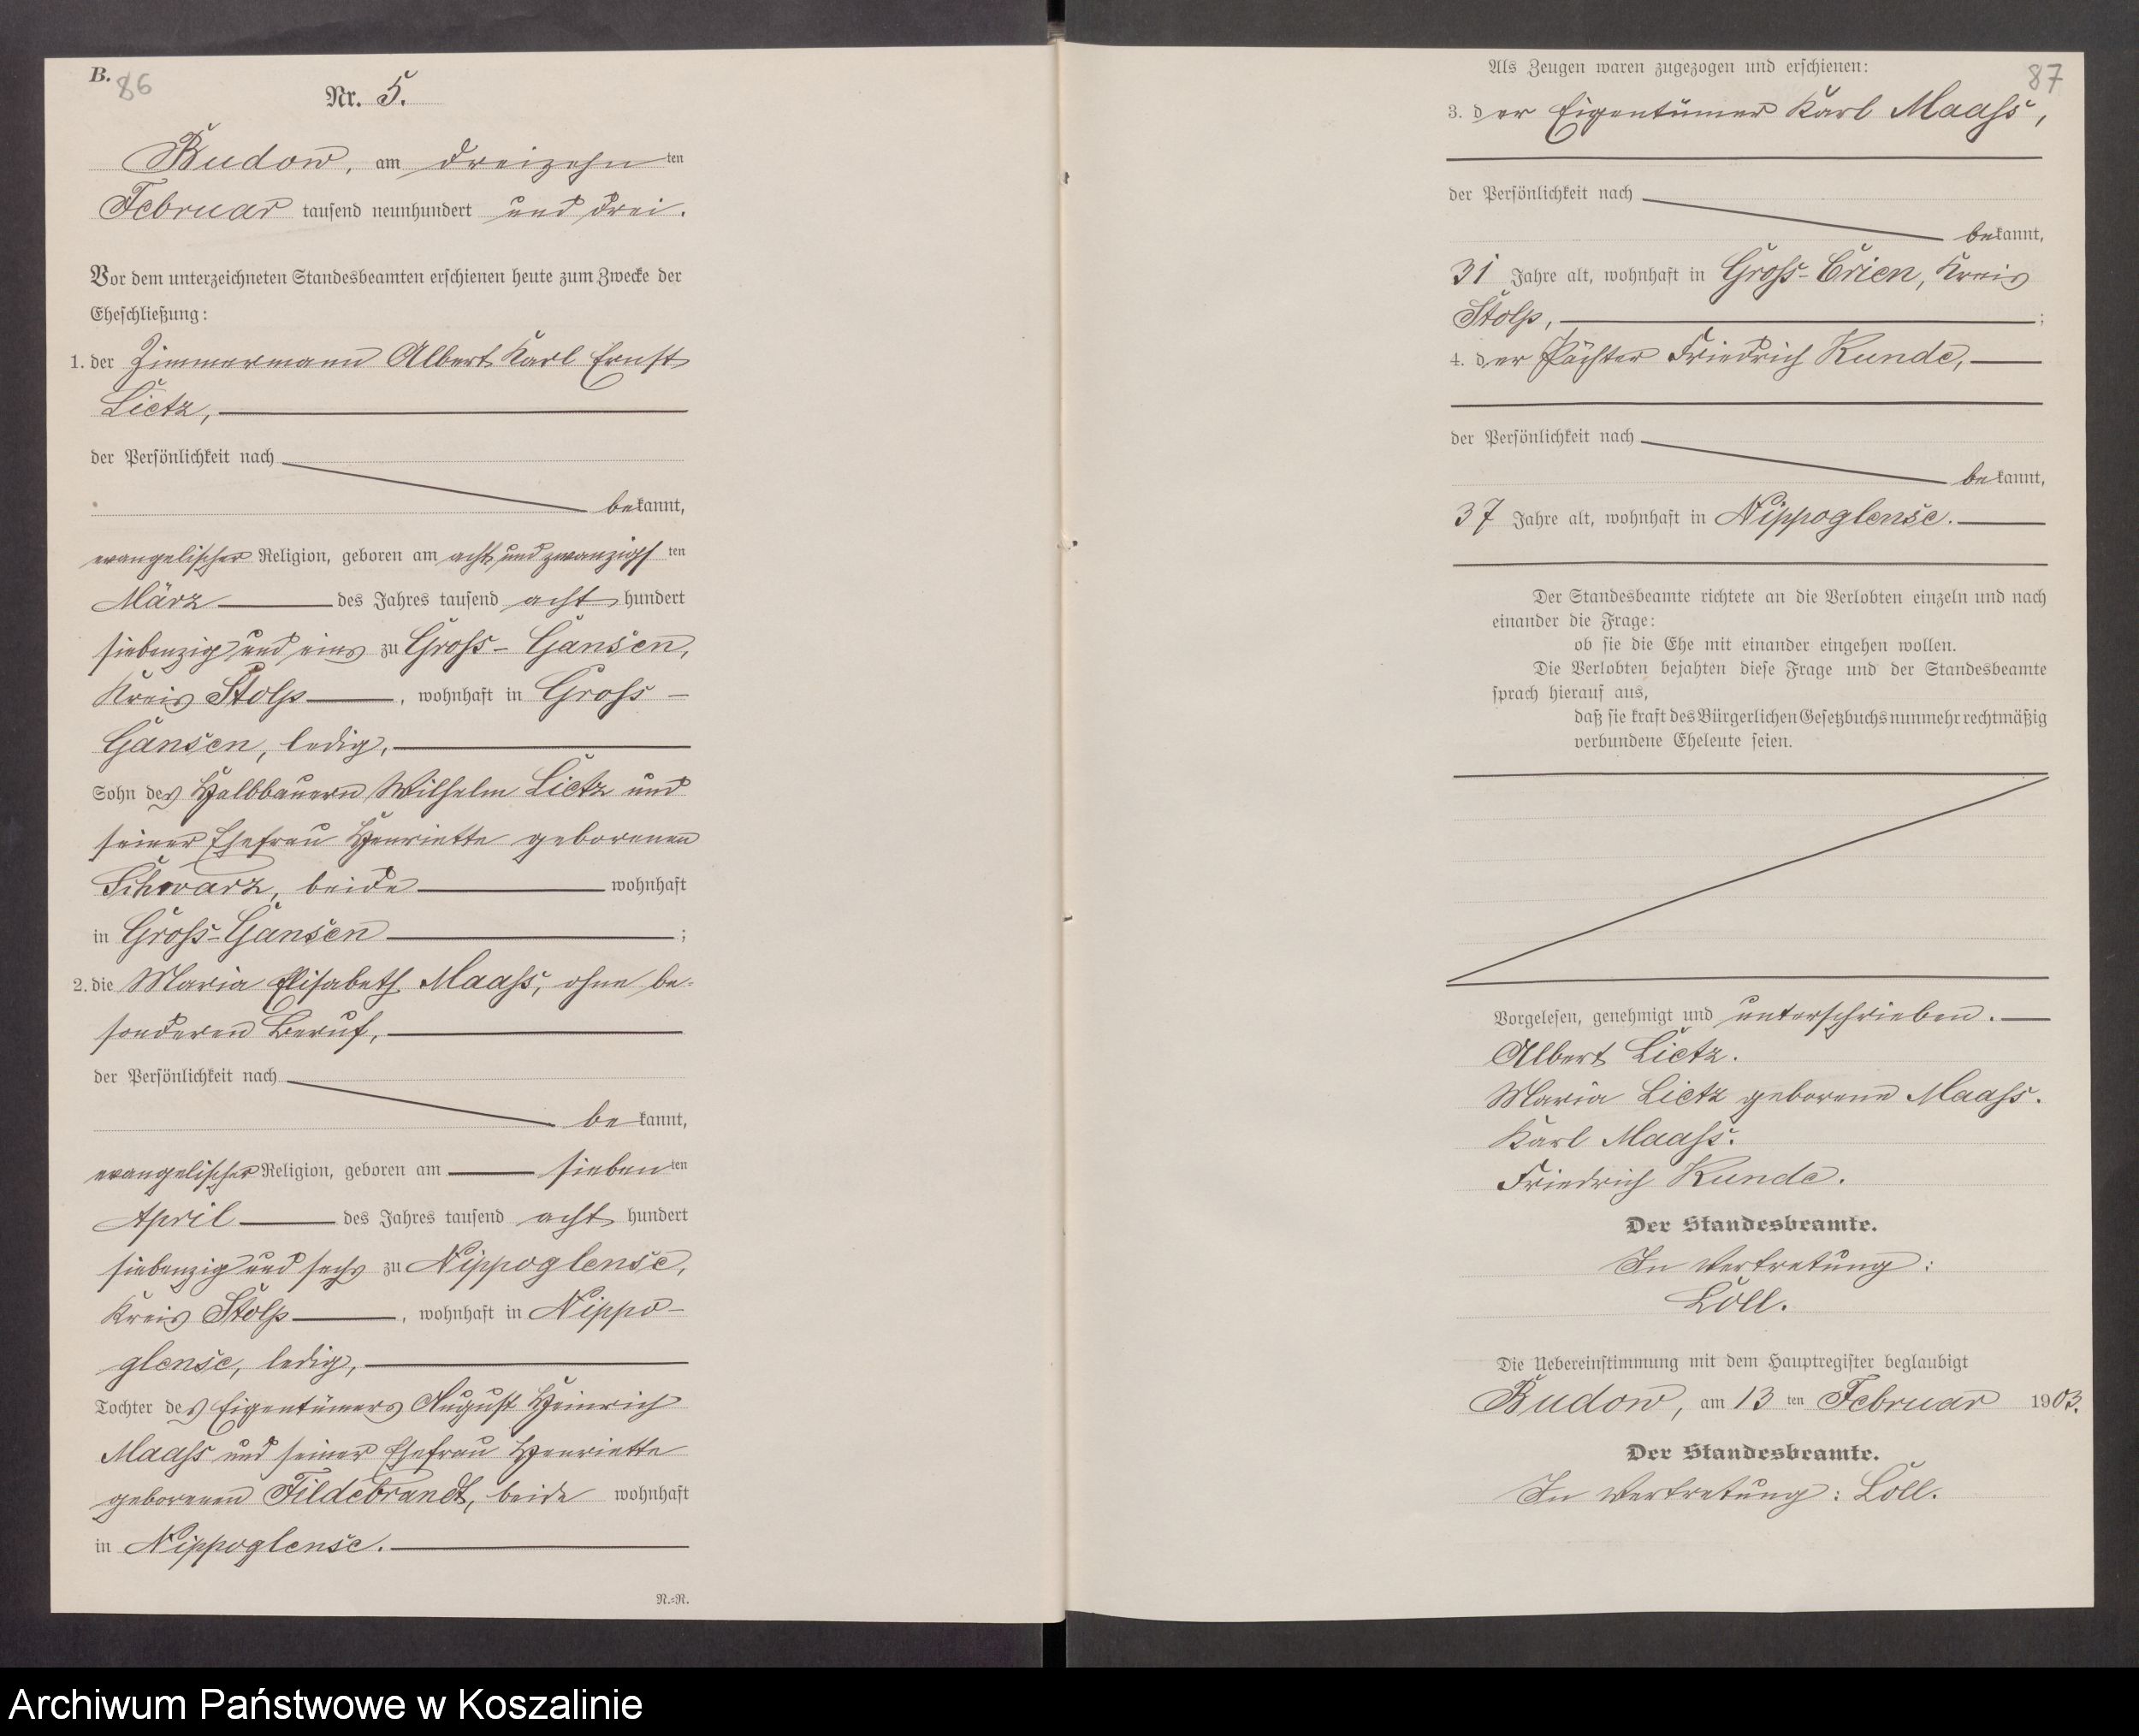 B. 86
Nr. 5.
Budow, am dreizehn ten
Februar tausend neunhundert und drei.
Vor dem unterzeichneten Standesbeamten erschienen heute zum Zwecke der
Eheschließung:
1. der Zimmermann Albert Karl Ernst
Lietz,
der Persönlichkeit nach
bekannt,
evangelischer Religion, geboren am acht und zwanzigs ten
März des Jahres tausend acht hundert
siebenzig und eins zu Gross-Gansen,
Kreis Stolp, wohnhaft in Gross-
Gansen, ledig,
Sohn des Halbbauern Wilhelm Lietz und
seiner Ehefrau Henriette geborenen
Schwarz, beide wohnhaft
in Gross-Gansen;
2. die Maria Elisabeth Maass, ohne be-
sonderen Beruf,
der Persönlichkeit nach
bekannt,
evangelischer Religion, geboren am sieben ten
April des Jahres tausend acht hundert
siebenzig und sechs zu Nippoglense,
Kreis Stolp, wohnhaft in Nippo-
glense, ledig,
Tochter des Eigentümers August Heinrich
Maass und seiner Ehefrau Henriette
geborenen Fildebrandt, beide wohnhaft
in Nippoglense.
N.=N.
87
Als Zeugen waren zugezogen und erschienen:
3. der Eigentümer Karl Maass,
der Persönlichkeit nach
bekannt,
31 Jahre alt, wohnhaft in Gross-Crien, Kreis
Stolp,;
4. der Pächter Friedrich Kunde,
der Persönlichkeit nach
bekannt,
37 Jahre alt, wohnhaft in Nippoglense.
Der Standesbeamte richtete an die Verlobten einzeln und nach
einander die Frage:
ob sie die Ehe mit einander eingehen wollen.
Die Verlobten bejahten diese Frage und der Standesbeamte
sprach hierauf aus,
daß sie kraft des Bürgerlichen Gesetzbuchs nunmehr rechtmäßig
verbundene Eheleute seien.
Vorgelesen, genehmigt und unterschrieben.
Albert Lietz.
Maria Lietz geborene Maass.
Karl Maass.
Friedrich Kunde.
Der Standesbeamte.
In Vertretung:
Löll.
Die Uebereinstimmung mit dem Hauptregister beglaubigt
Budow, am 13 ten Februar 1903.
Der Standesbeamte.
In Vertretung: Löll.
Archiwum Państwowe w Koszalinie